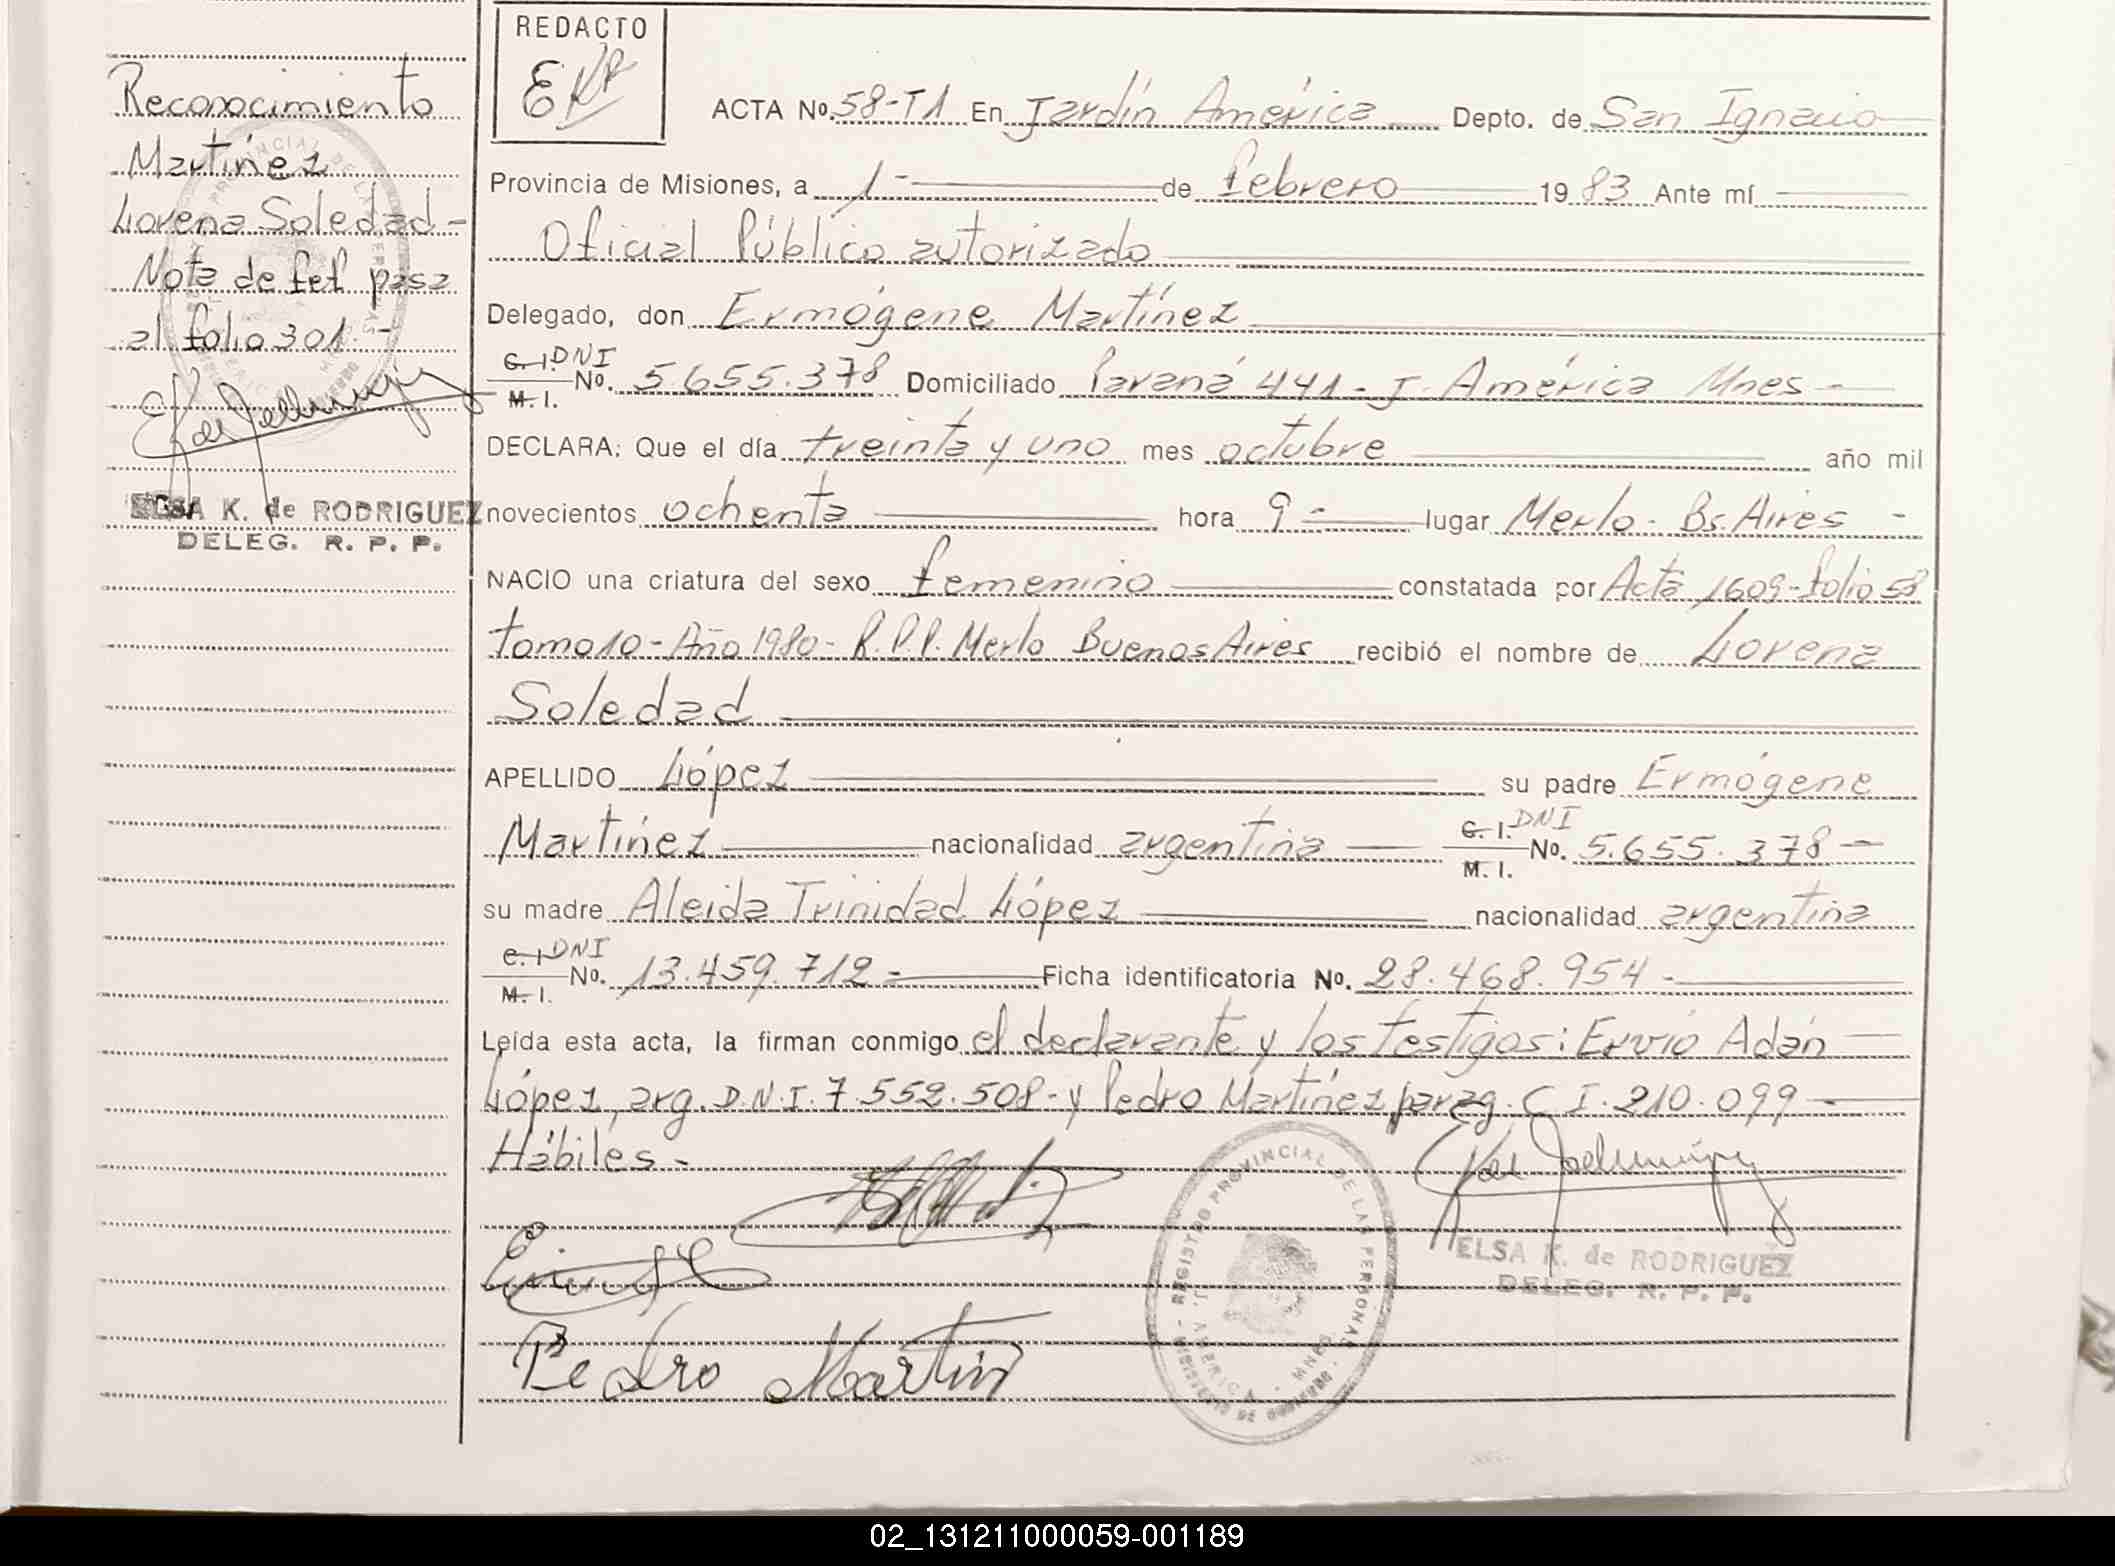 Reconocimiento
Martínez
Lorena Soledad -
Nota de ref pasa
al folio 301.-
ELSA K. de RODRIGUEZ
DELEG. R. P. P.
REDACTO
EKR
ACTA No. 58-T1 En Jardín América Depto. de San Ignacio
Provincia de Misiones, a 1- de febrero 19 83 Ante mí
Oficial Público autorizado
Delegado, don Ermógene Martínez
C. I. DNI
M. I. No. 5.655.378 Domiciliado Paraná 441 - J. América Mnes -
DECLARA: Que el día treinta y uno mes octubre año mil
novecientos ochenta hora 9 - lugar Merlo - Bs. Aires -
NACIO una criatura del sexo femenino constatada por Acta 1609-folio 58
tomo 10 - Año 1980 - R.P.P. Merlo Buenos Aires recibió el nombre de Lorena
Soledad
APELLIDO López su padre Ermógene
Martínez nacionalidad argentina C. I. DNI M. I. No. 5.655.378 -
su madre Aleida Trinidad López nacionalidad argentina
C. I. DNI
M. I. No. 13.459.712 - Ficha identificatoria No. 28.468.954 -
Leída esta acta, la firman conmigo el declarante y los testigos: Ervio Adán
López, arg. D.N.I. 7.552.508 - y Pedro Martínez parag. C I. 210.099 -
Hábiles -
Pedro Martin
REGISTRO PROVINCIAL DE LAS PERSONAS
J. AMERICA - MNES
MINISTERIO DE GOBIERNO
ELSA K. de RODRIGUEZ
DELEG. R. P. P.
02_131211000059-001189